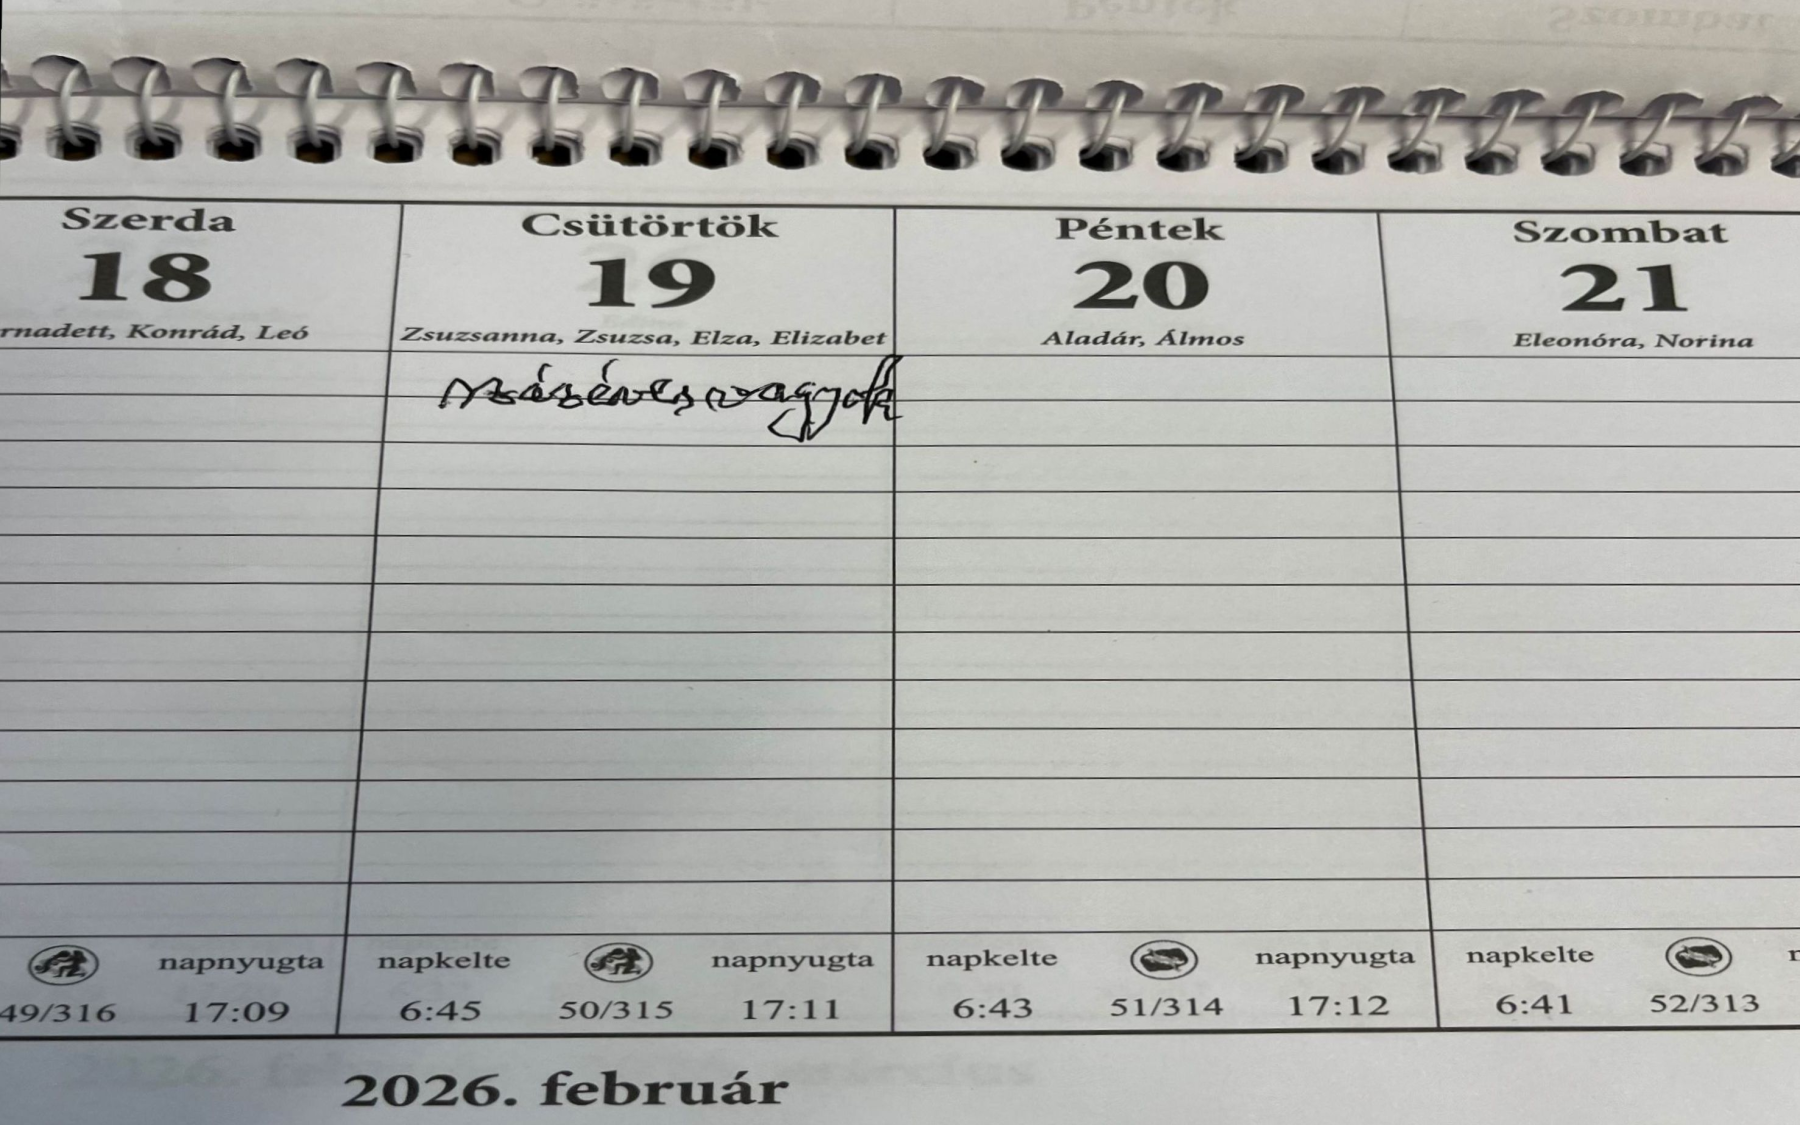 Szerda Csütörtök Péntek Szombat
18 19 20 21
rnadett, Konrád, Leó Zsuzsanna, Zsuzsa, Elza, Elizabet Aladár, Álmos Eleonóra, Norina
vagyok
napnyugta napkelte napnyugta napkelte napnyugta napkelte
49/316 17:09 6:45 50/315 17:11 6:43 51/314 17:12 6:41 52/313
2026. február